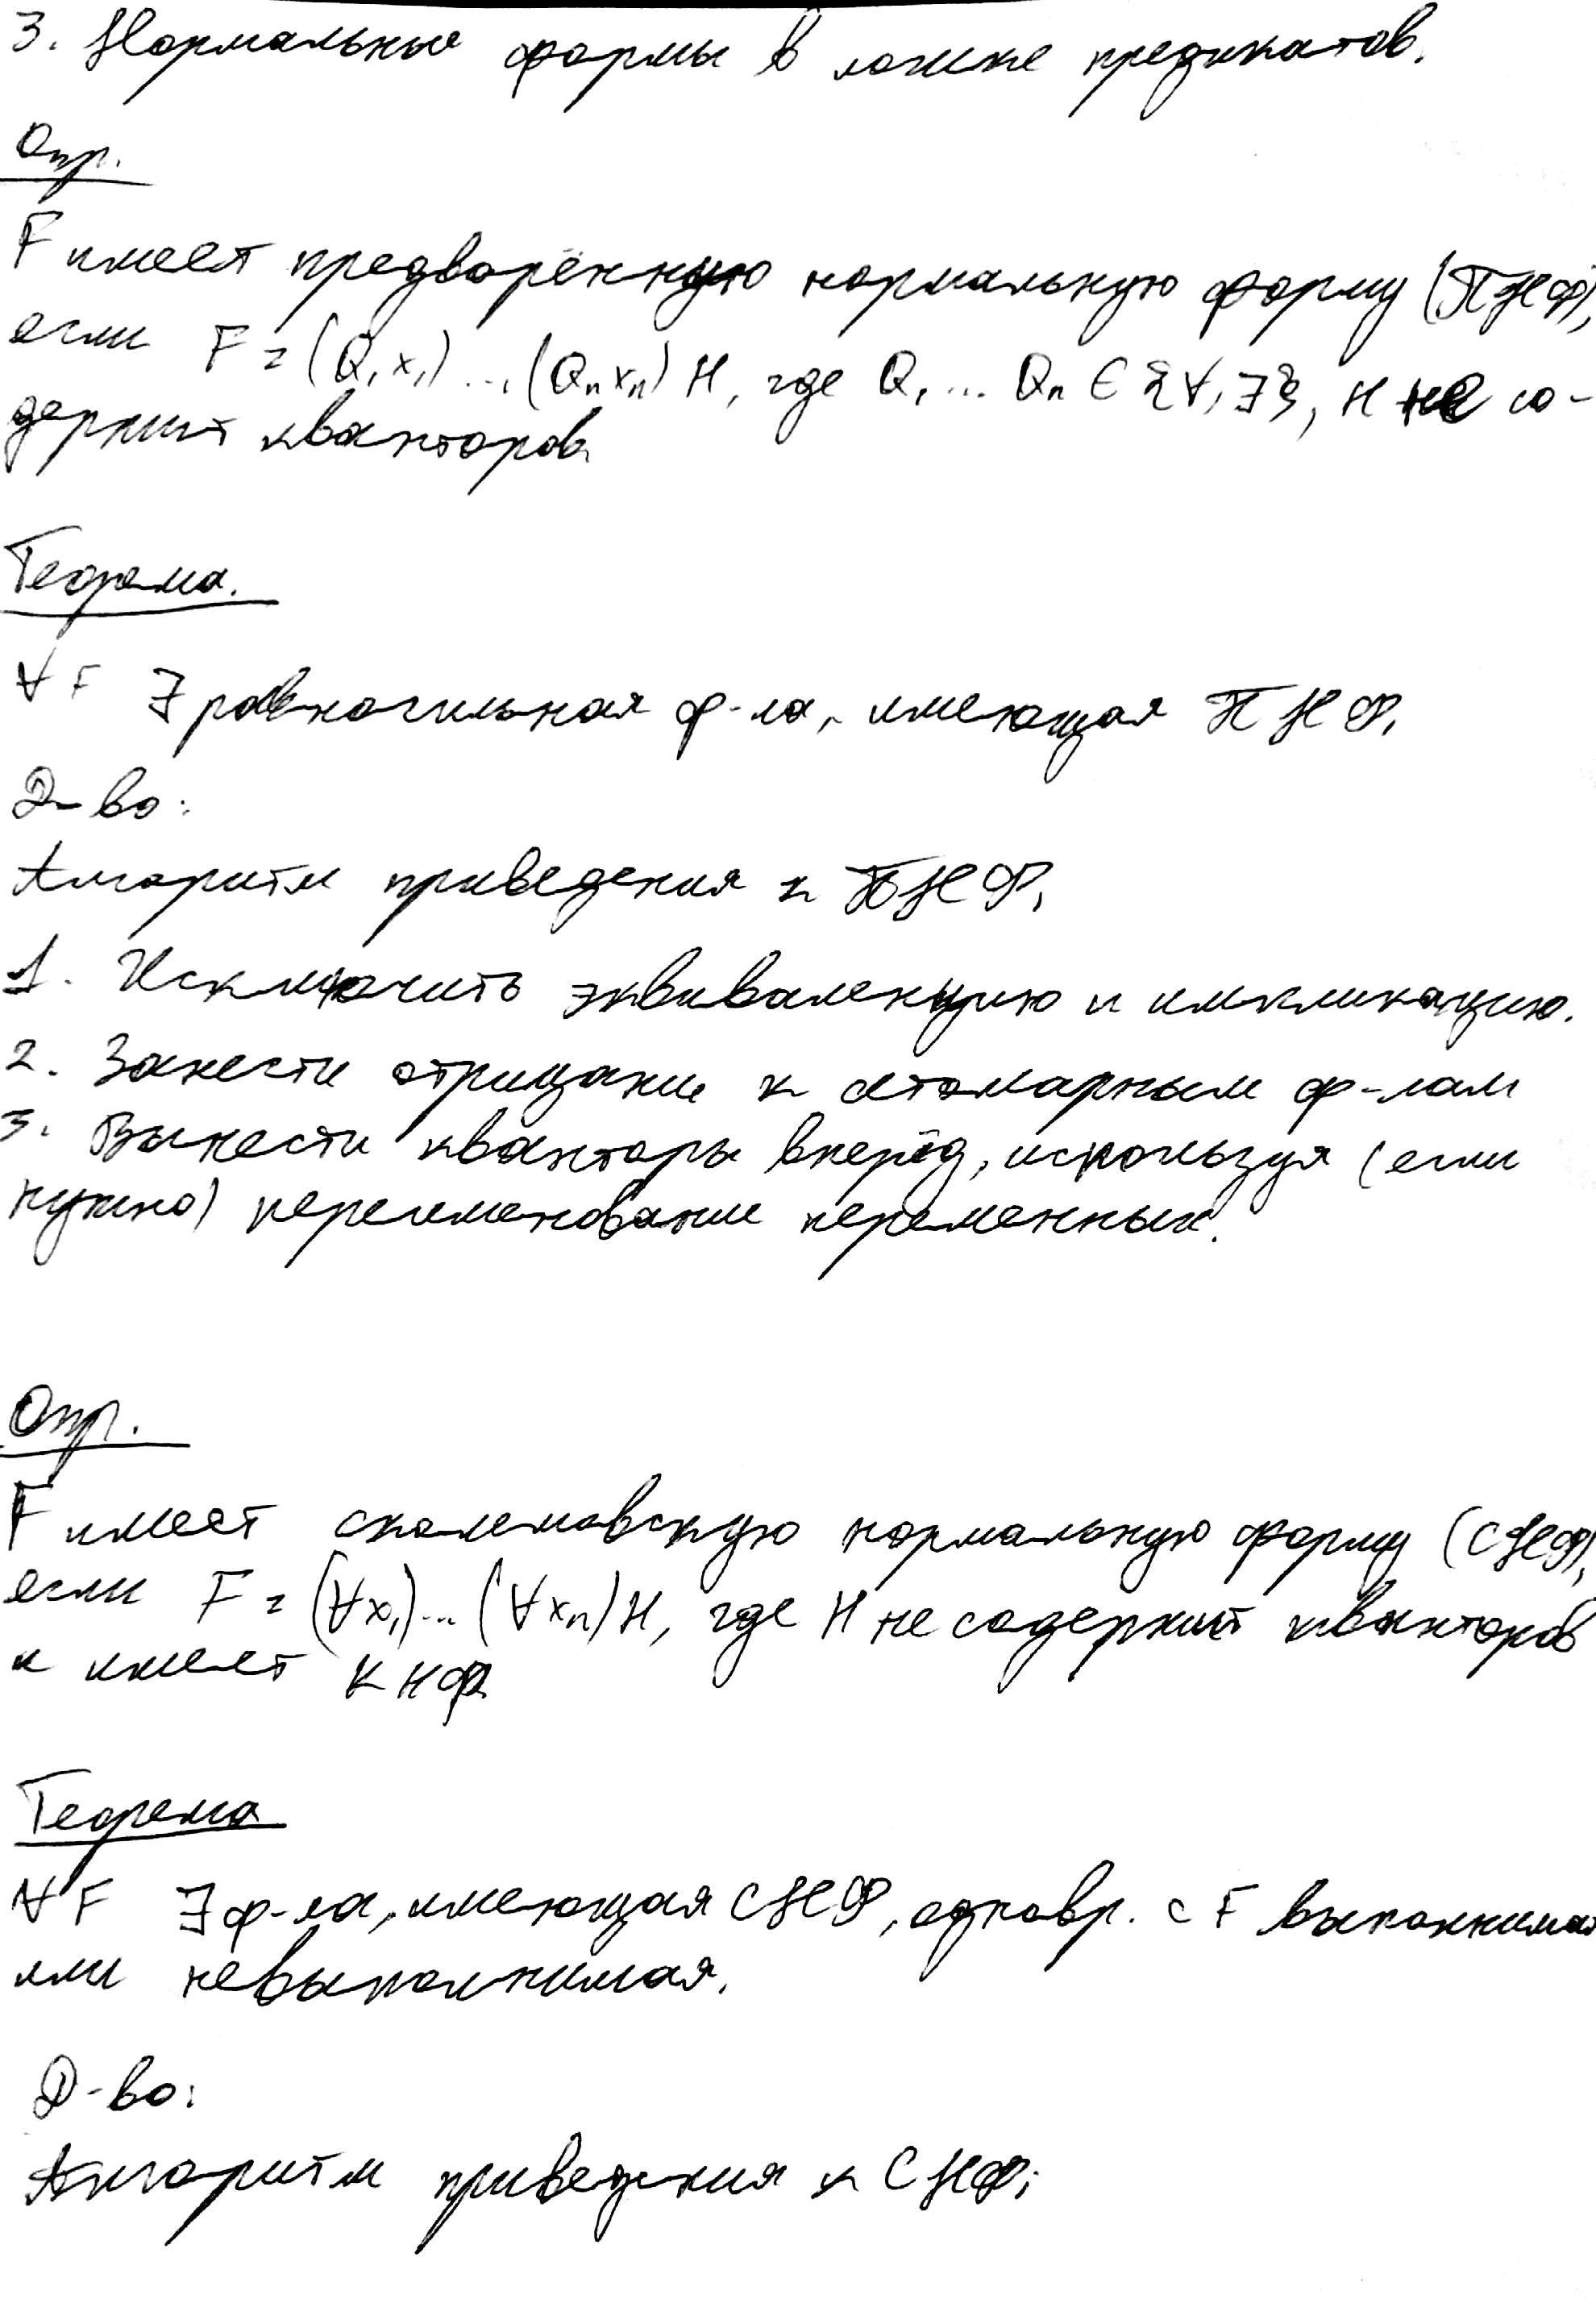 3. Нормальные формы в логике предикатов.
Опр.
F имеет предварённую нормальную форму (ПНФ),
если F = (Q₁x₁)...(Qₙxₙ)H, где Q₁...Qₙ ∈ {∀,∃}, H не со-
держит кванторов.
Теорема.
∀F ∃ равносильная ф-ла, имеющая ПНФ.
Д-во:
Алгоритм приведения к ПНФ.
1. Исключить эквиваленцию и импликацию.
2. Занести отрицание к атомарным ф-лам
3. Вынести кванторы вперёд, используя (если
нужно) переименование переменных.
Опр.
F имеет сколемовскую нормальную форму (СНФ),
если F = (∀x₁)...(∀xₙ)H, где H не содержит кванторов
и имеет КНФ
Теорема
∀F ∃ ф-ла, имеющая СНФ, одновр. с F выполнимая
или невыполнимая.
Д-во:
Алгоритм приведения к СНФ: